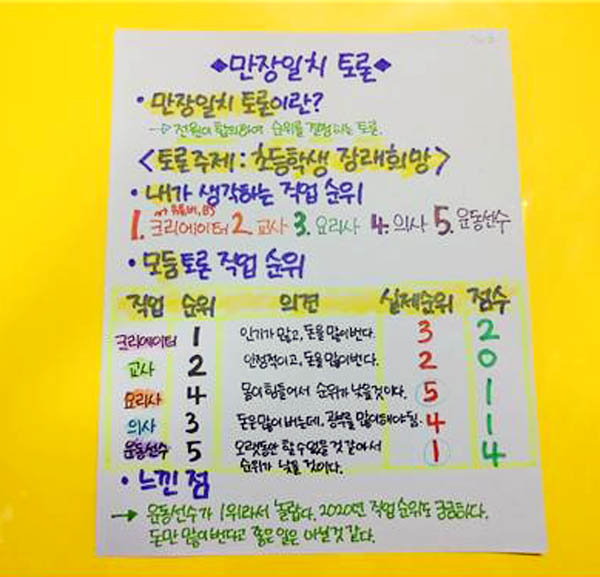 ◆만장일치 토론◆
• 만장일치 토론이란?
→ 전원이 합의하여 순위를 결정하는 토론.
<토론주제 : 초등학생 장래희망>
• 내가 생각하는 직업 순위
유튜버, BJ
1. 크리에이터 2. 교사 3. 요리사 4. 의사 5. 운동선수
• 모둠토론 직업 순위
직업 순위 의견 실제순위 점수
크리에이터 1 인기가 많고, 돈을 많이번다. 3 2
교사 2 안정적이고, 돈을 많이번다. 2 0
요리사 4 몸이 힘들어서 순위가 낮을것이다. 5 1
의사 3 돈은많이 버는데, 공부를 많이해야됨. 4 1
운동선수 5 오랫동안 할수없을것 같아서 1 4
순위가 낮을 것이다.
• 느낀 점
→ 운동선수가 1위라서 놀랍다. 2020년 직업 순위도 궁금하다.
돈만 많이 번다고 좋은 일은 아닐것 같다.